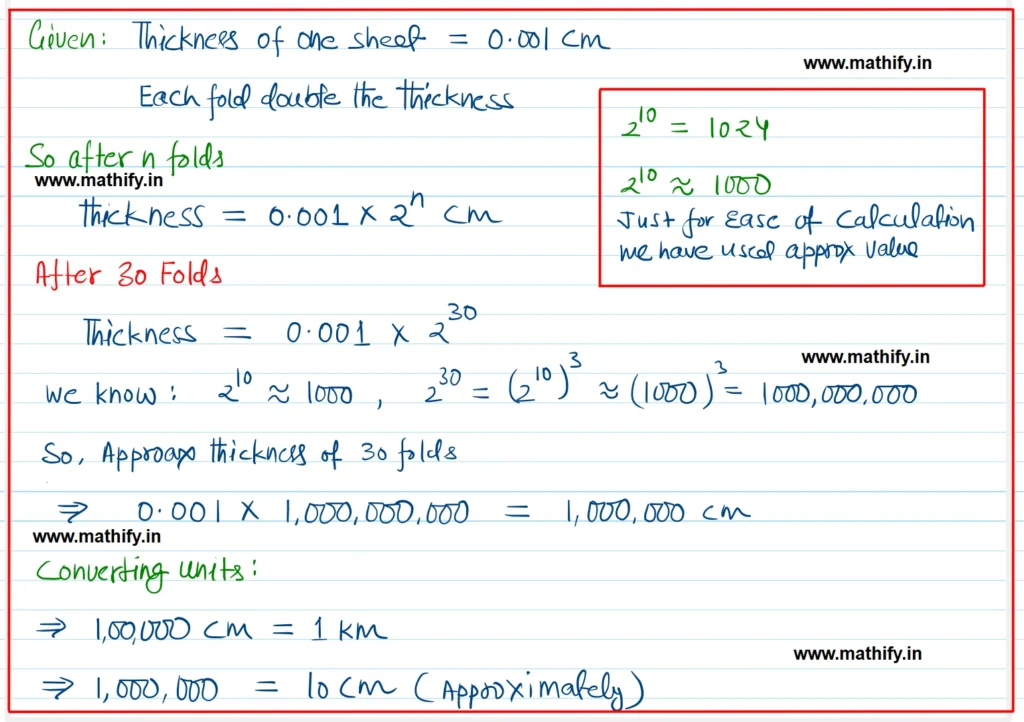 Given: Thickness of one sheet = 0.001 cm
www.mathify.in
Each fold double the thickness
2^10 = 1024
So after n folds
www.mathify.in
2^10 ≈ 1000
Thickness = 0.001 × 2^n cm
Just for Ease of Calculation
we have used approx value
After 30 Folds
Thickness = 0.001 × 2^30
www.mathify.in
we know: 2^10 ≈ 1000 , 2^30 = (2^10)^3 ≈ (1000)^3 = 1000,000,000
So, Approax thickness of 30 folds
⇒ 0.001 × 1,000,000,000 = 1,000,000 cm
www.mathify.in
Converting units:
⇒ 1,00,000 cm = 1 km
www.mathify.in
⇒ 1,000,000 = 10 cm (Approximately)